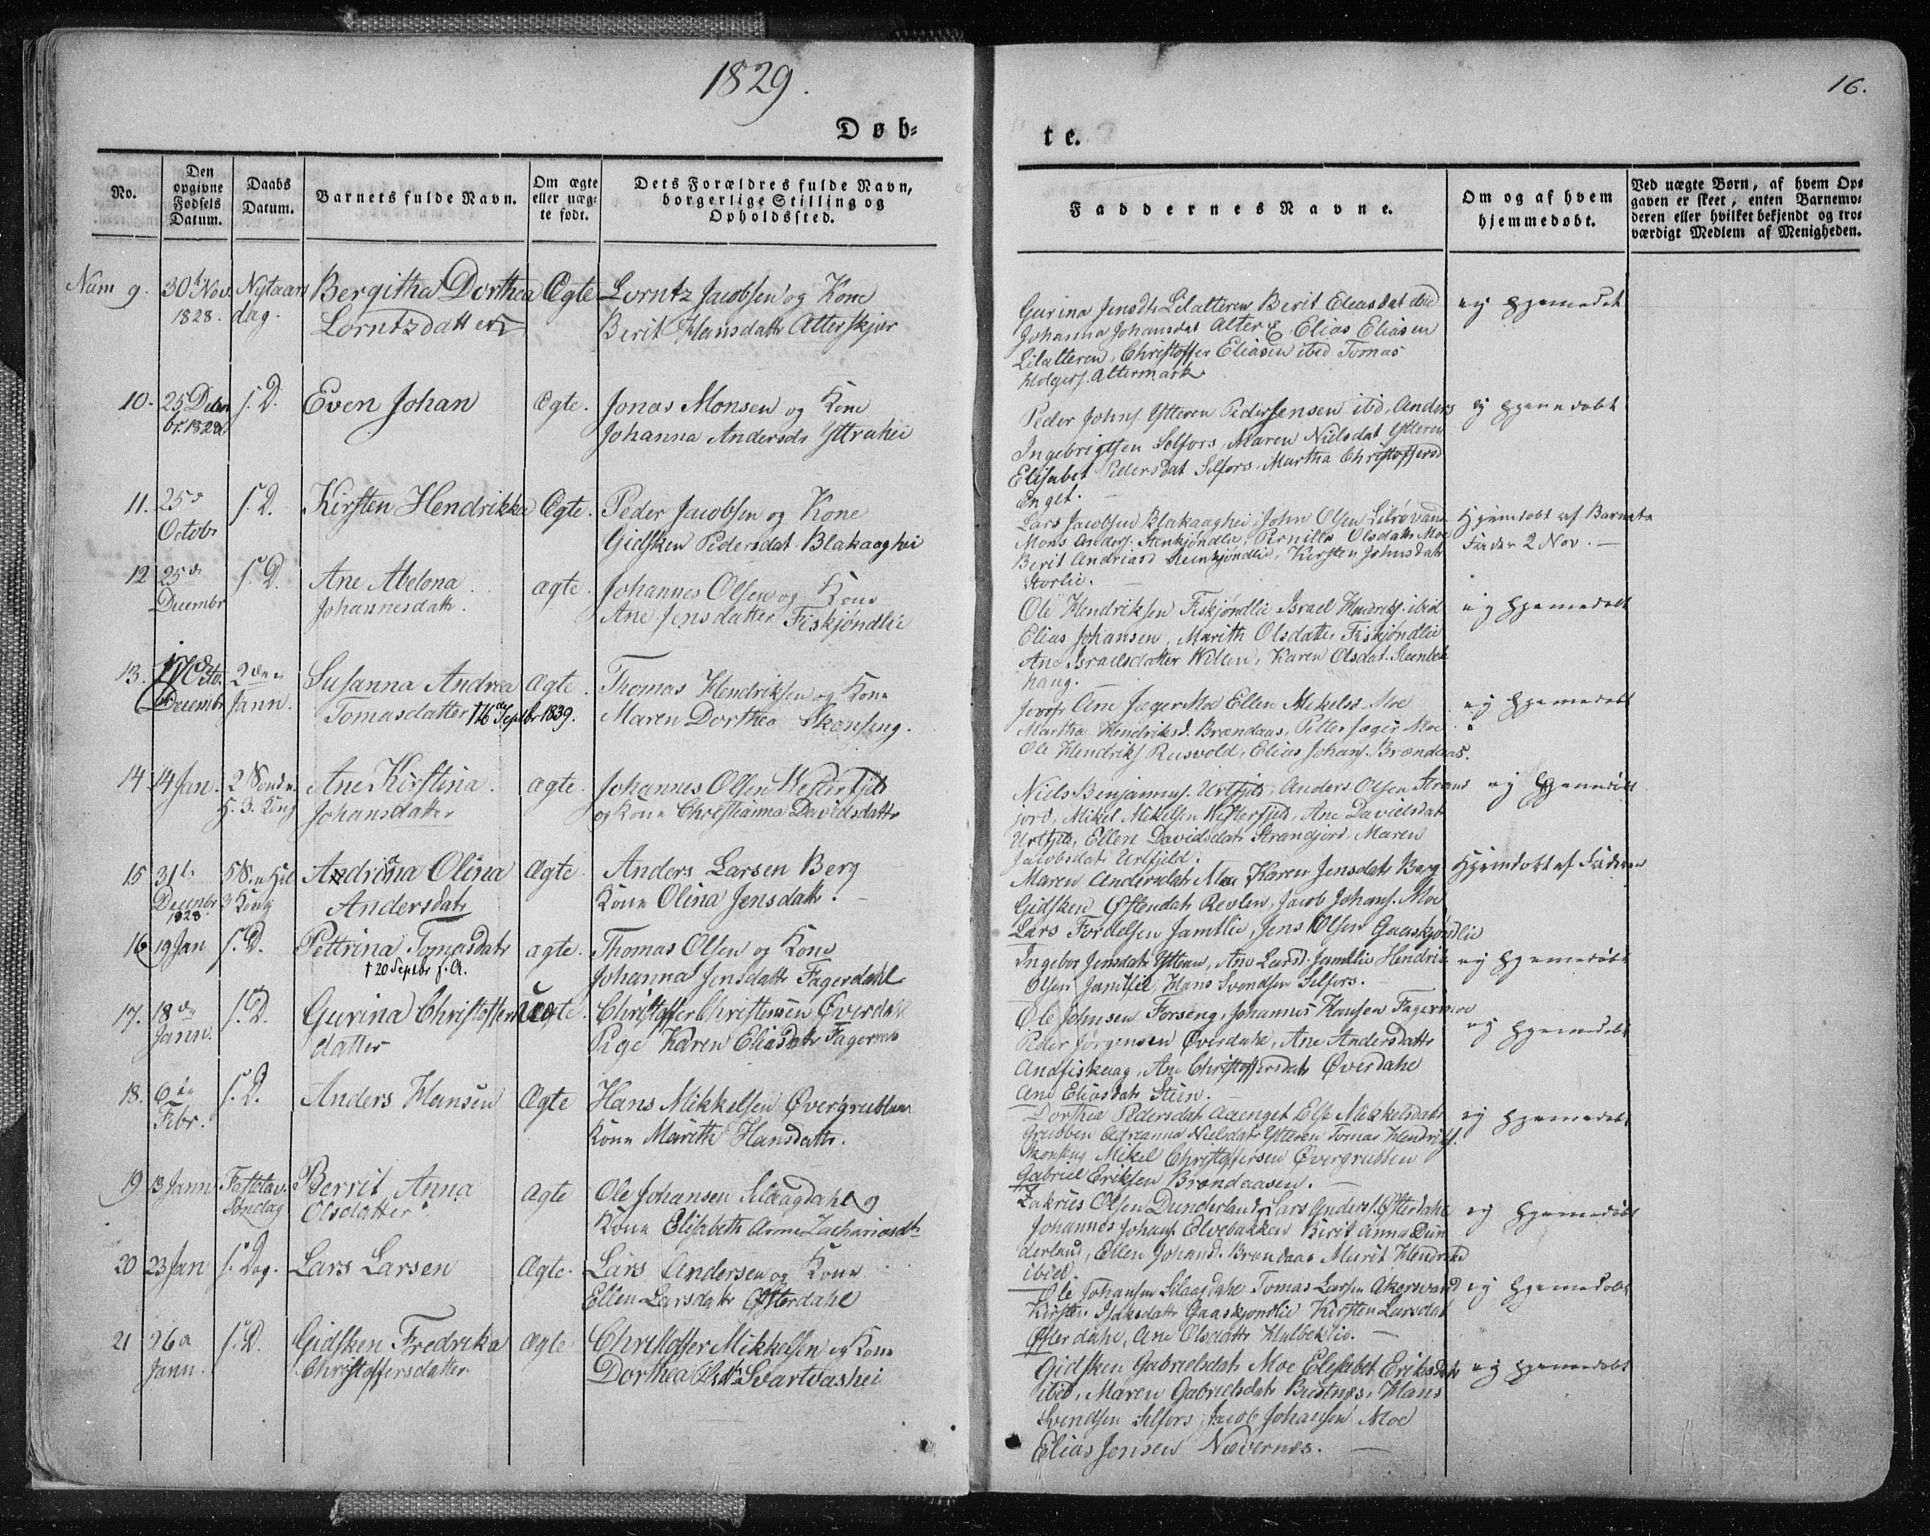 1829.
16.
Døb-
te.
No.
Den opgivne Fødsels Datum.
Daabs Datum.
Barnets fulde Navn.
Om ægte eller uæg-te født.
Dets Forældres fulde Navn, borgerlige Stilling og Opholdssted.
Faddernes Navne.
Om og af hvem hjemmedøbt.
Ved uægte Børn, af hvem Op-gaven er skeet, enten Barnemo-deren eller hvilket bekjendt og tro-værdigt Medlem af Menigheden.
Num 9. 30t Nov. 1828. Nytaars dag.
Bergitha Dorthea
Lorntzdatter
Ægte
Lorntz Jacobsen og Kone
Berit Hansdatter Alterskjær
Gurina Jensdt Lilalteren Berit Eliasdat ibid
Johanna Johansdat Alter Elias Eliasen
Lilalteren, Christoffer Eliasen ibid Tomas
Holgers. Altermark
ey
10. 25 Decbr. 1828 s. D.
Even Johan
Ægte.
Jonas Monsen og Kone
Johanna Andersdr Yttrahei
Peder Johns Ytteren Peder Jensen ibid, Anders
Ingebrigtsen Selfors, Maren Nielsdat Ytteren
Elisabet Pedersdat Selfors, Martha Christoffersd
Enget.
11. 25d Octobr s. D.
Kirsten Hendrikka
Ægte.
Peder Jacobsen og Kone
Gidsken Pedersdat Blakaaghei
Lars Jacobsen Blakaaghei, John Olsen
Mons Anders. Stenkjøndlie, Pernille Olsdatr Moe
Berit Andriasd Kirsten Johnsdat
Storlie.
Hjemdøbt af Barnets
Fader 2 Nov.
12 25d Decembr s. D.
Ane Abelona
Johannesdatr.
ægte.
Johannes Olsen og Kone
Ane Jensdatter Fiskjøndlie
Ole Hendriksen Fiskjøndlie Israel Hendriks. ibid
Elias Johansen, Marith Olsdatter Fiskjøndlie
Ane Israelsdatter Karen Olsdat. Stenbek
haug.
13. Decembr 2den Jann.
Susanna Andrea
Tomasdatter † 16de Septbr 1839.
Ægte.
Thomas Hendriksen og Kone
Maren Dorthea Skonseng.
Ane Jæger Moe Ellen Mikelsd. Moe
Martha Hendriksd. Brændaas, Petter Jæger Moe
Ole Hendriks Elias Johans. Brændaas.
14 14 Jan. 2 Sond
H. 3. Kong
Ane Kirstina
Johansdatter
ægte.
Johannes Olsen Westerfjeld
og Kone Christianna Davidsdattr
Niels Benjamins. Urtfjeld Anders Olsen Strand
jord, Mikel Mikelsen Westerfjeld, Ane Davidsdat
Urtfjeld, Ellen Davidsdat Strandjord, Maren
Jacobsdat Urtfjeld.
15 31t Decmbr 1828 3 Kong
Andrina Olina
Andersdatr
Ægte.
Anders Larsen Berg
Kone Olina Jensdattr.
Maren Andersdat Moe Karen Jensdatr Berg
Gidsken Østendat Revlen, Jacob Johans. Moe
Lars Jamtlie, Jens Olsen Gaaskjøndlie
Hjemdøbt af Faderen
16 19 Jan s. D.
Pettrina Tomasdatr
† 20 Septbr s. A.
ægte.
Thomas Olsen og Kone
Johanna Jensdattr Fagerdahl
Ingebor Jensdatr Ytteren, Ane Larsd. Jamtlie Hendrik
Olsen Jamtlie, Hans Svendsen Selfors.
17. 18de Jann. s. D.
Gurina Christoffers
datter
Uægte.
Christoffer Christensen Øverdahl
Pige Karen Eliasdatr Fagermo
Ole Johnsen Forseng, Johannes Hansen Fagermoe
Peder Jørgensen Øverdahl, Ane Andersdattr
Andfiskaag, Ane Christoffersdatr Øverdahl
Ane Eliasdatr Steen.
18. 6te Febr. s. D.
Anders Hansen
Ægte
Hans Mikkelsen Øvergrubben
Kone Marith Hansdattr.
Dorthea Pedersdat Aaenget, Else Mikkelsdatr
Grubben Andreanna Nielsdatr Ytteren Tomas Hendriks.
Skonseng Mikel Christoffersen Øvergrubben
Gabriel Eriksen Brændaasen.
19 3 Jann Fastelav. Søndag
Berrit Anna
Olsdatter
Ægte
Ole Johansen Slaagdahl og
Kone Elisabeth Anne Zachariasdt
Zakries Olsen Dunderland, Lars Anders. Øfterdahl
Johannes Johans. Elvebakken Birit Anna Dun
derland, Ellen Johansd. Brændaas Marit Hendriksd
ibid
20 23 Jan s. Dag.
Lars Larsen
Ægte.
Lars Andersen og Kone
Ellen Larsdatr Øfterdahl
Ole Johansen Slaagdahl Tomas Larsen Akersvand
Kirsten Isaksdatr Gaaskjøndlie Kirsten Larsdat
Øfterdahl, Ane Olsdattr
21 26d Jann. s. D.
Gidsken Fredrika
Christoffersdatter
Ægte
Christoffer Mikkelsen og Kone
Dorthea Olsdr Svartvashei
Gidsken Gabrielsdatr Moe Elisabet Eriksdatr
ibid, Maren Gabrielsdatr Bustnes, Hans
Svendsen Selfors, Jacob Johansen Moe
Elias Jensen Nævernes.